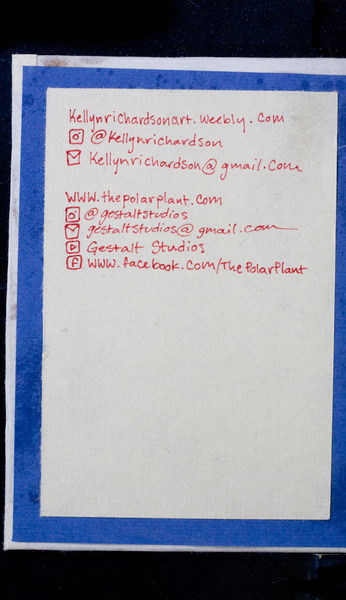 Kellynrichardsonart.weebly.com
@kellynrichardson
Kellynrichardson@gmail.com
www.thepolarplant.com
@gestaltstudios
gestaltstudios@gmail.com
Gestalt Studios
www.facebook.com/ThePolarPlant